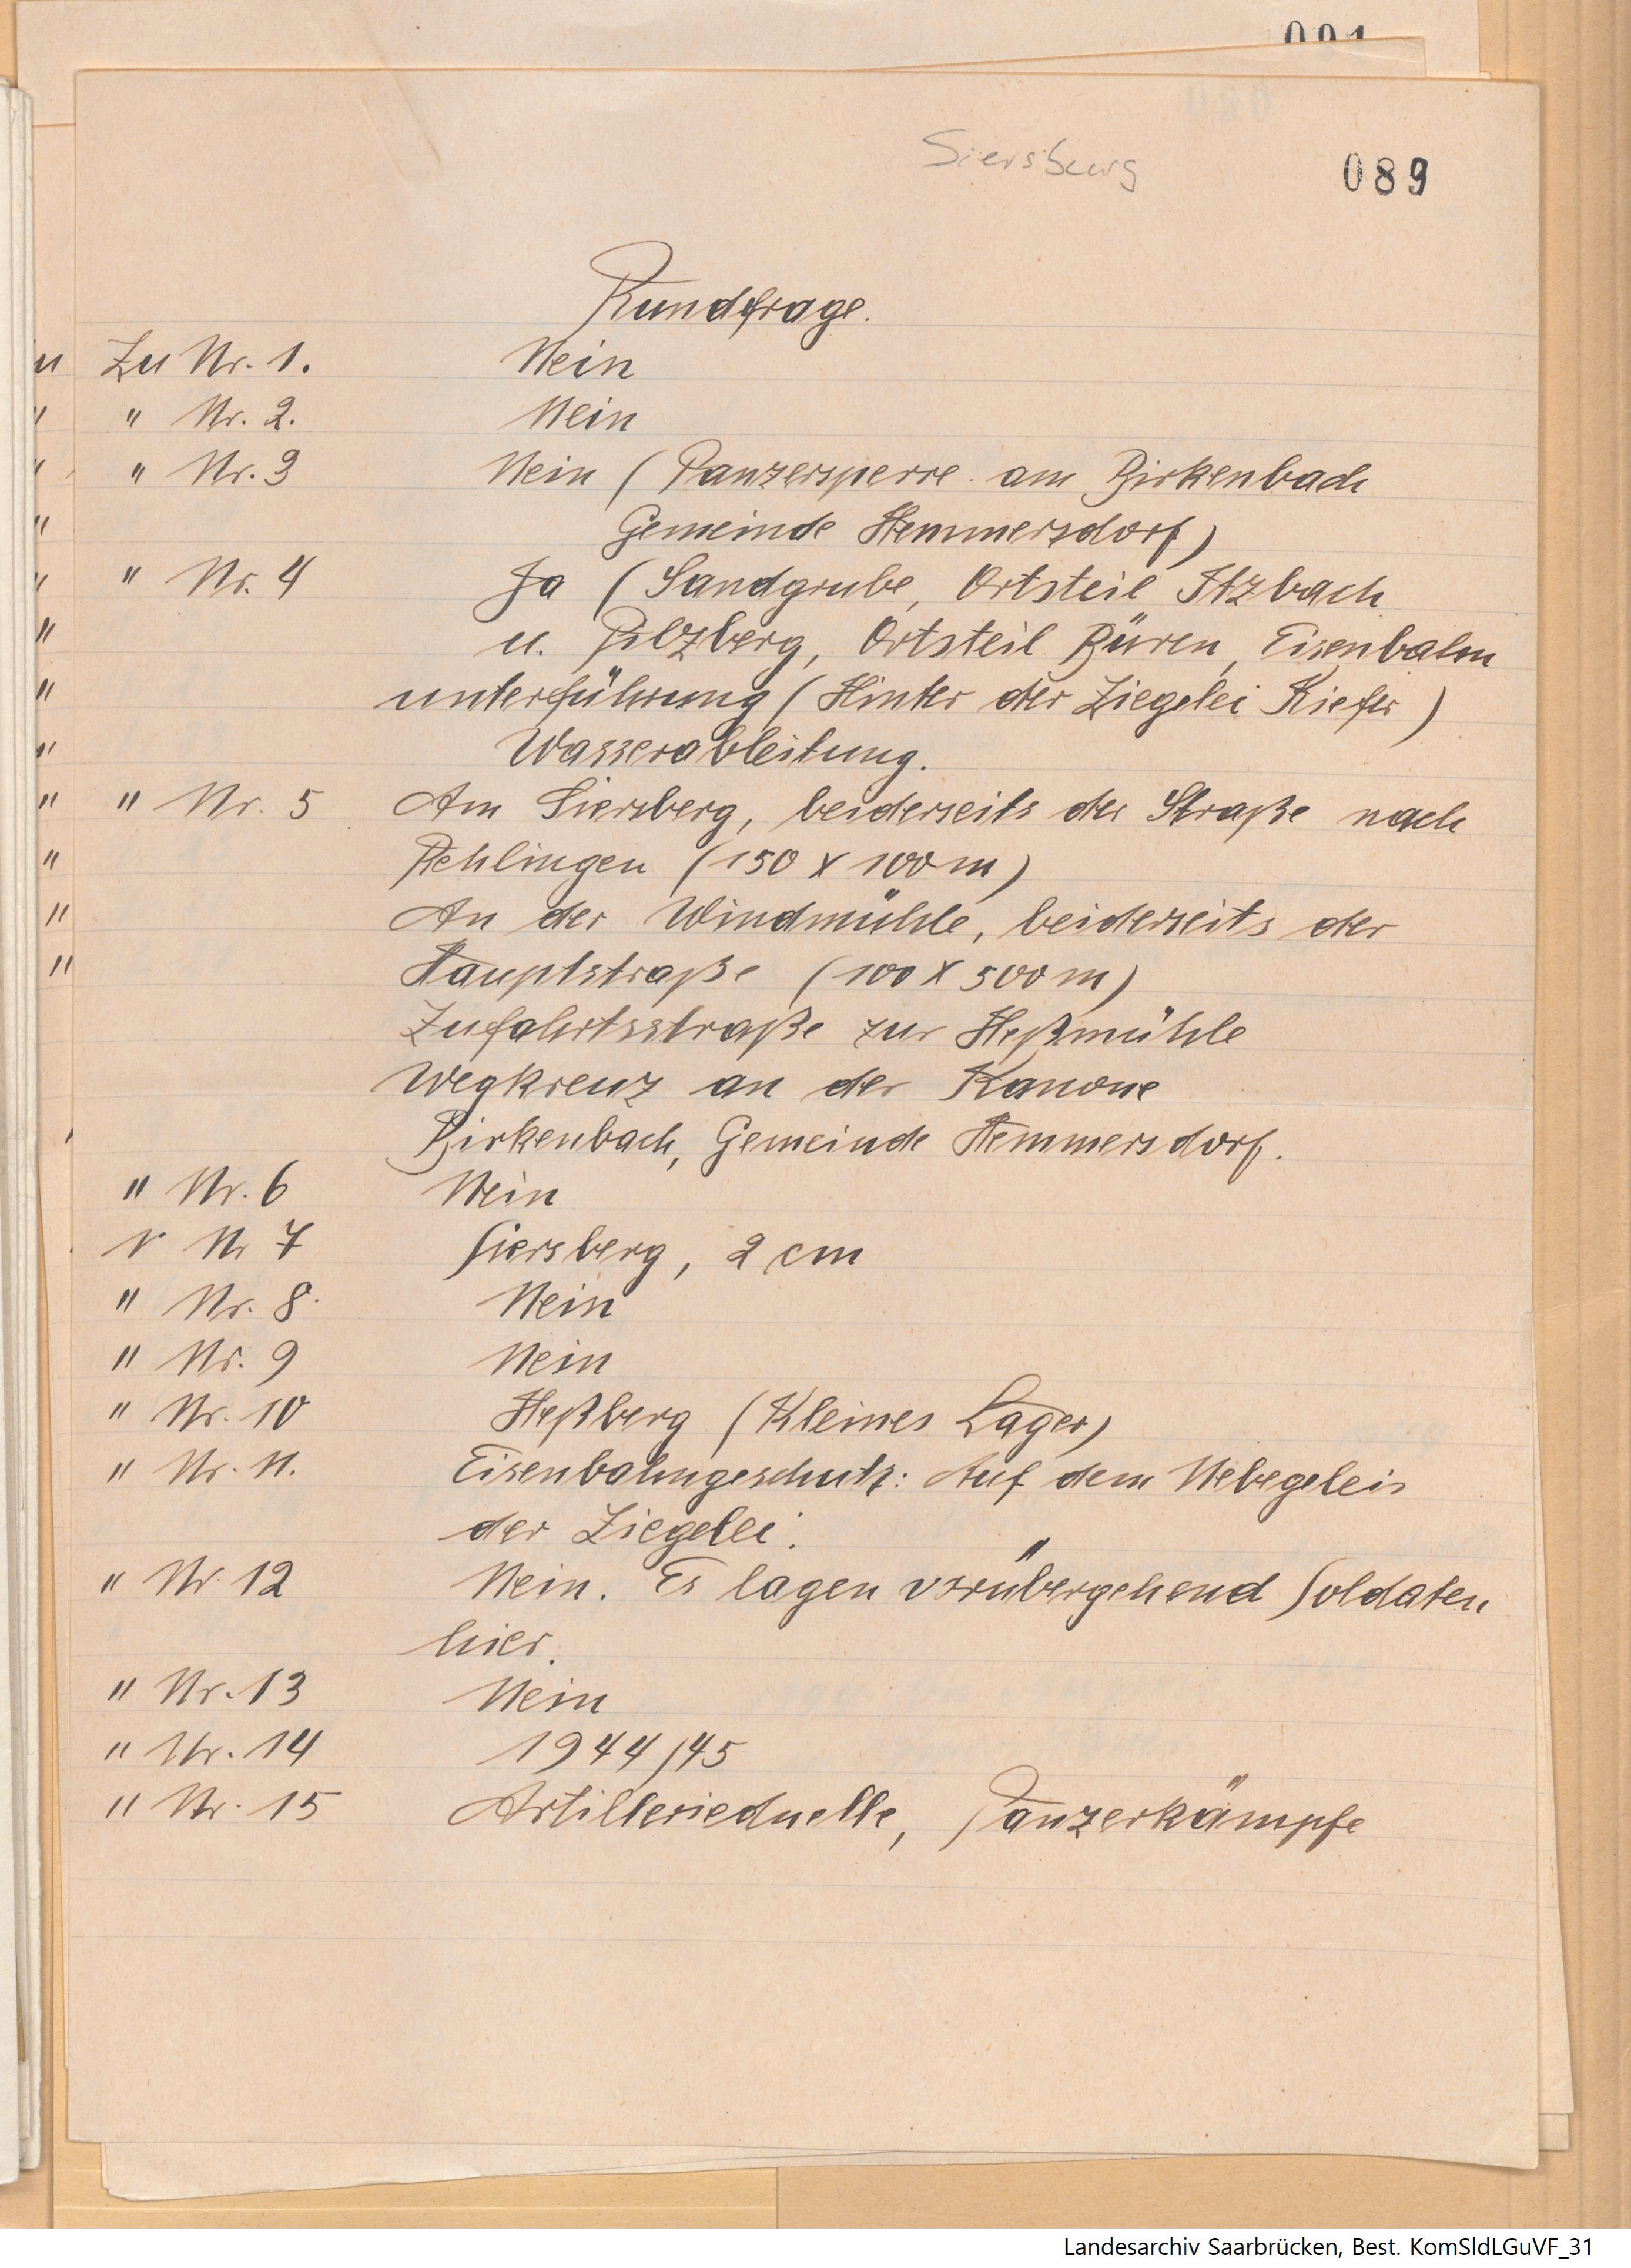 091
Siersburg
089
Rundfrage.
Zu Nr. 1. Nein
" Nr. 2. Nein
" Nr. 3 Nein (Panzersperre am Birkenbach
Gemeinde Hemmersdorf)
" Nr. 4 Ja (Sandgrube, Ortsteil Itzbach
u. Pilzberg, Ortsteil Büren, Eisenbahn
unterführung (Hinter der Ziegelei Kiefer)
Wasserableitung.
" Nr. 5 Am Siersberg, beiderseits der Straße nach
Rehlingen (150 x 100 m)
An der Windmühle, beiderseits der
Hauptstraße (100 x 500 m)
Zufahrtsstraße zur Heßmühle
Wegkreuz an der Kanone
Birkenbach, Gemeinde Hemmersdorf.
" Nr. 6 Nein
" Nr 7 Siersberg, 2 cm
" Nr. 8. Nein
" Nr. 9 Nein
" Nr. 10 Heßberg (Kleines Lager)
" Nr. 11. Eisenbahngeschutz: Auf dem Nebegeleis
der Ziegelei.
" Nr. 12 Nein. Es lagen vorübergehend Soldaten
hier.
" Nr. 13 Nein
" Nr. 14 1944/45
" Nr. 15 Artillerieduelle, Panzerkämpfe
Landesarchiv Saarbrücken, Best. KomSldLGuVF_31